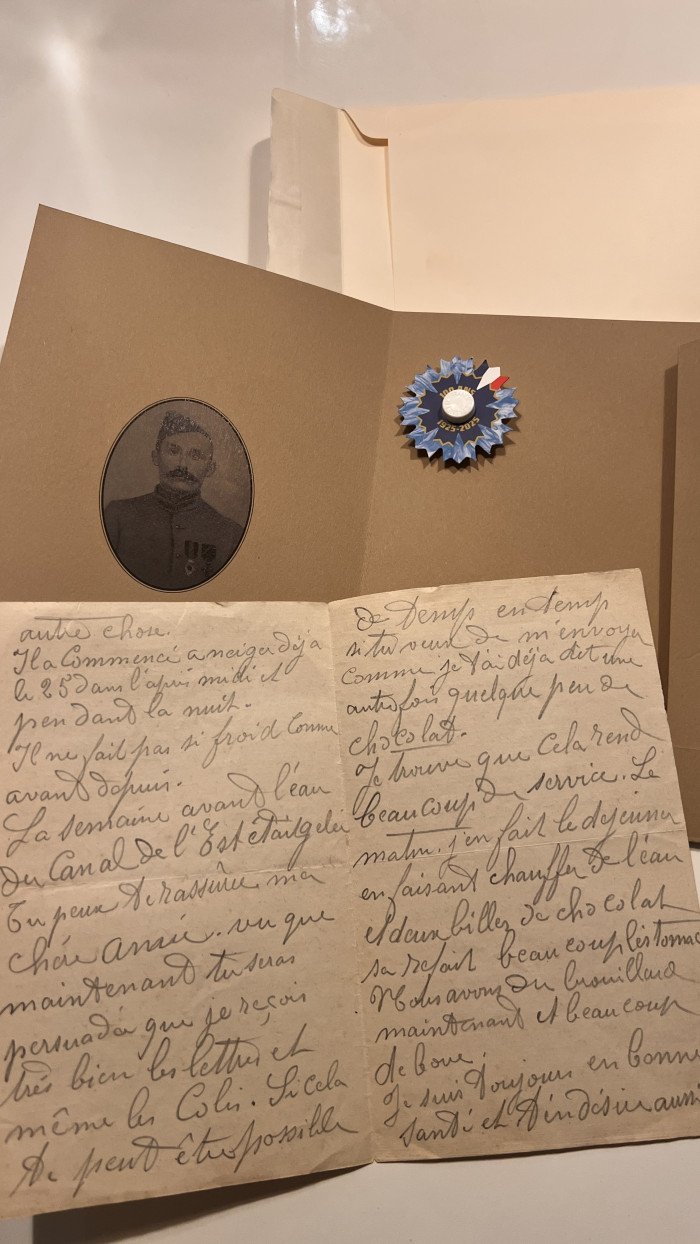 100 ANS
1925-2025
autre chose.
Il a Commencé a neiger déja
le 25 dans l'après midi et
pendant la nuit.
Il ne fait pas si froid Comme
avant depuis.
La semaine avant l'eau
du Canal de l'Est était gelée
Tu peux te rassurée ma
chère Amie. vu que
maintenant tu seras
persuadée que je reçois
très bien les lettres et
même les Colis. Si cela
te peut être possible
de temps en temp
si tu veux de m'envoyer
comme je t'ai déja dit une
autre fois quelque peu de
chocolat.
Je trouve que cela rend
beaucoup de service. Le
matin. j'en fait le déjeuner
en faisant chauffer de l'eau
et deux billes de chocolat
sa refait beaucoup l'estomac
Nous avons du brouillard
maintenant et beaucoup
de boue.
Je suis toujours en bonne
santé et t'en désire aussi